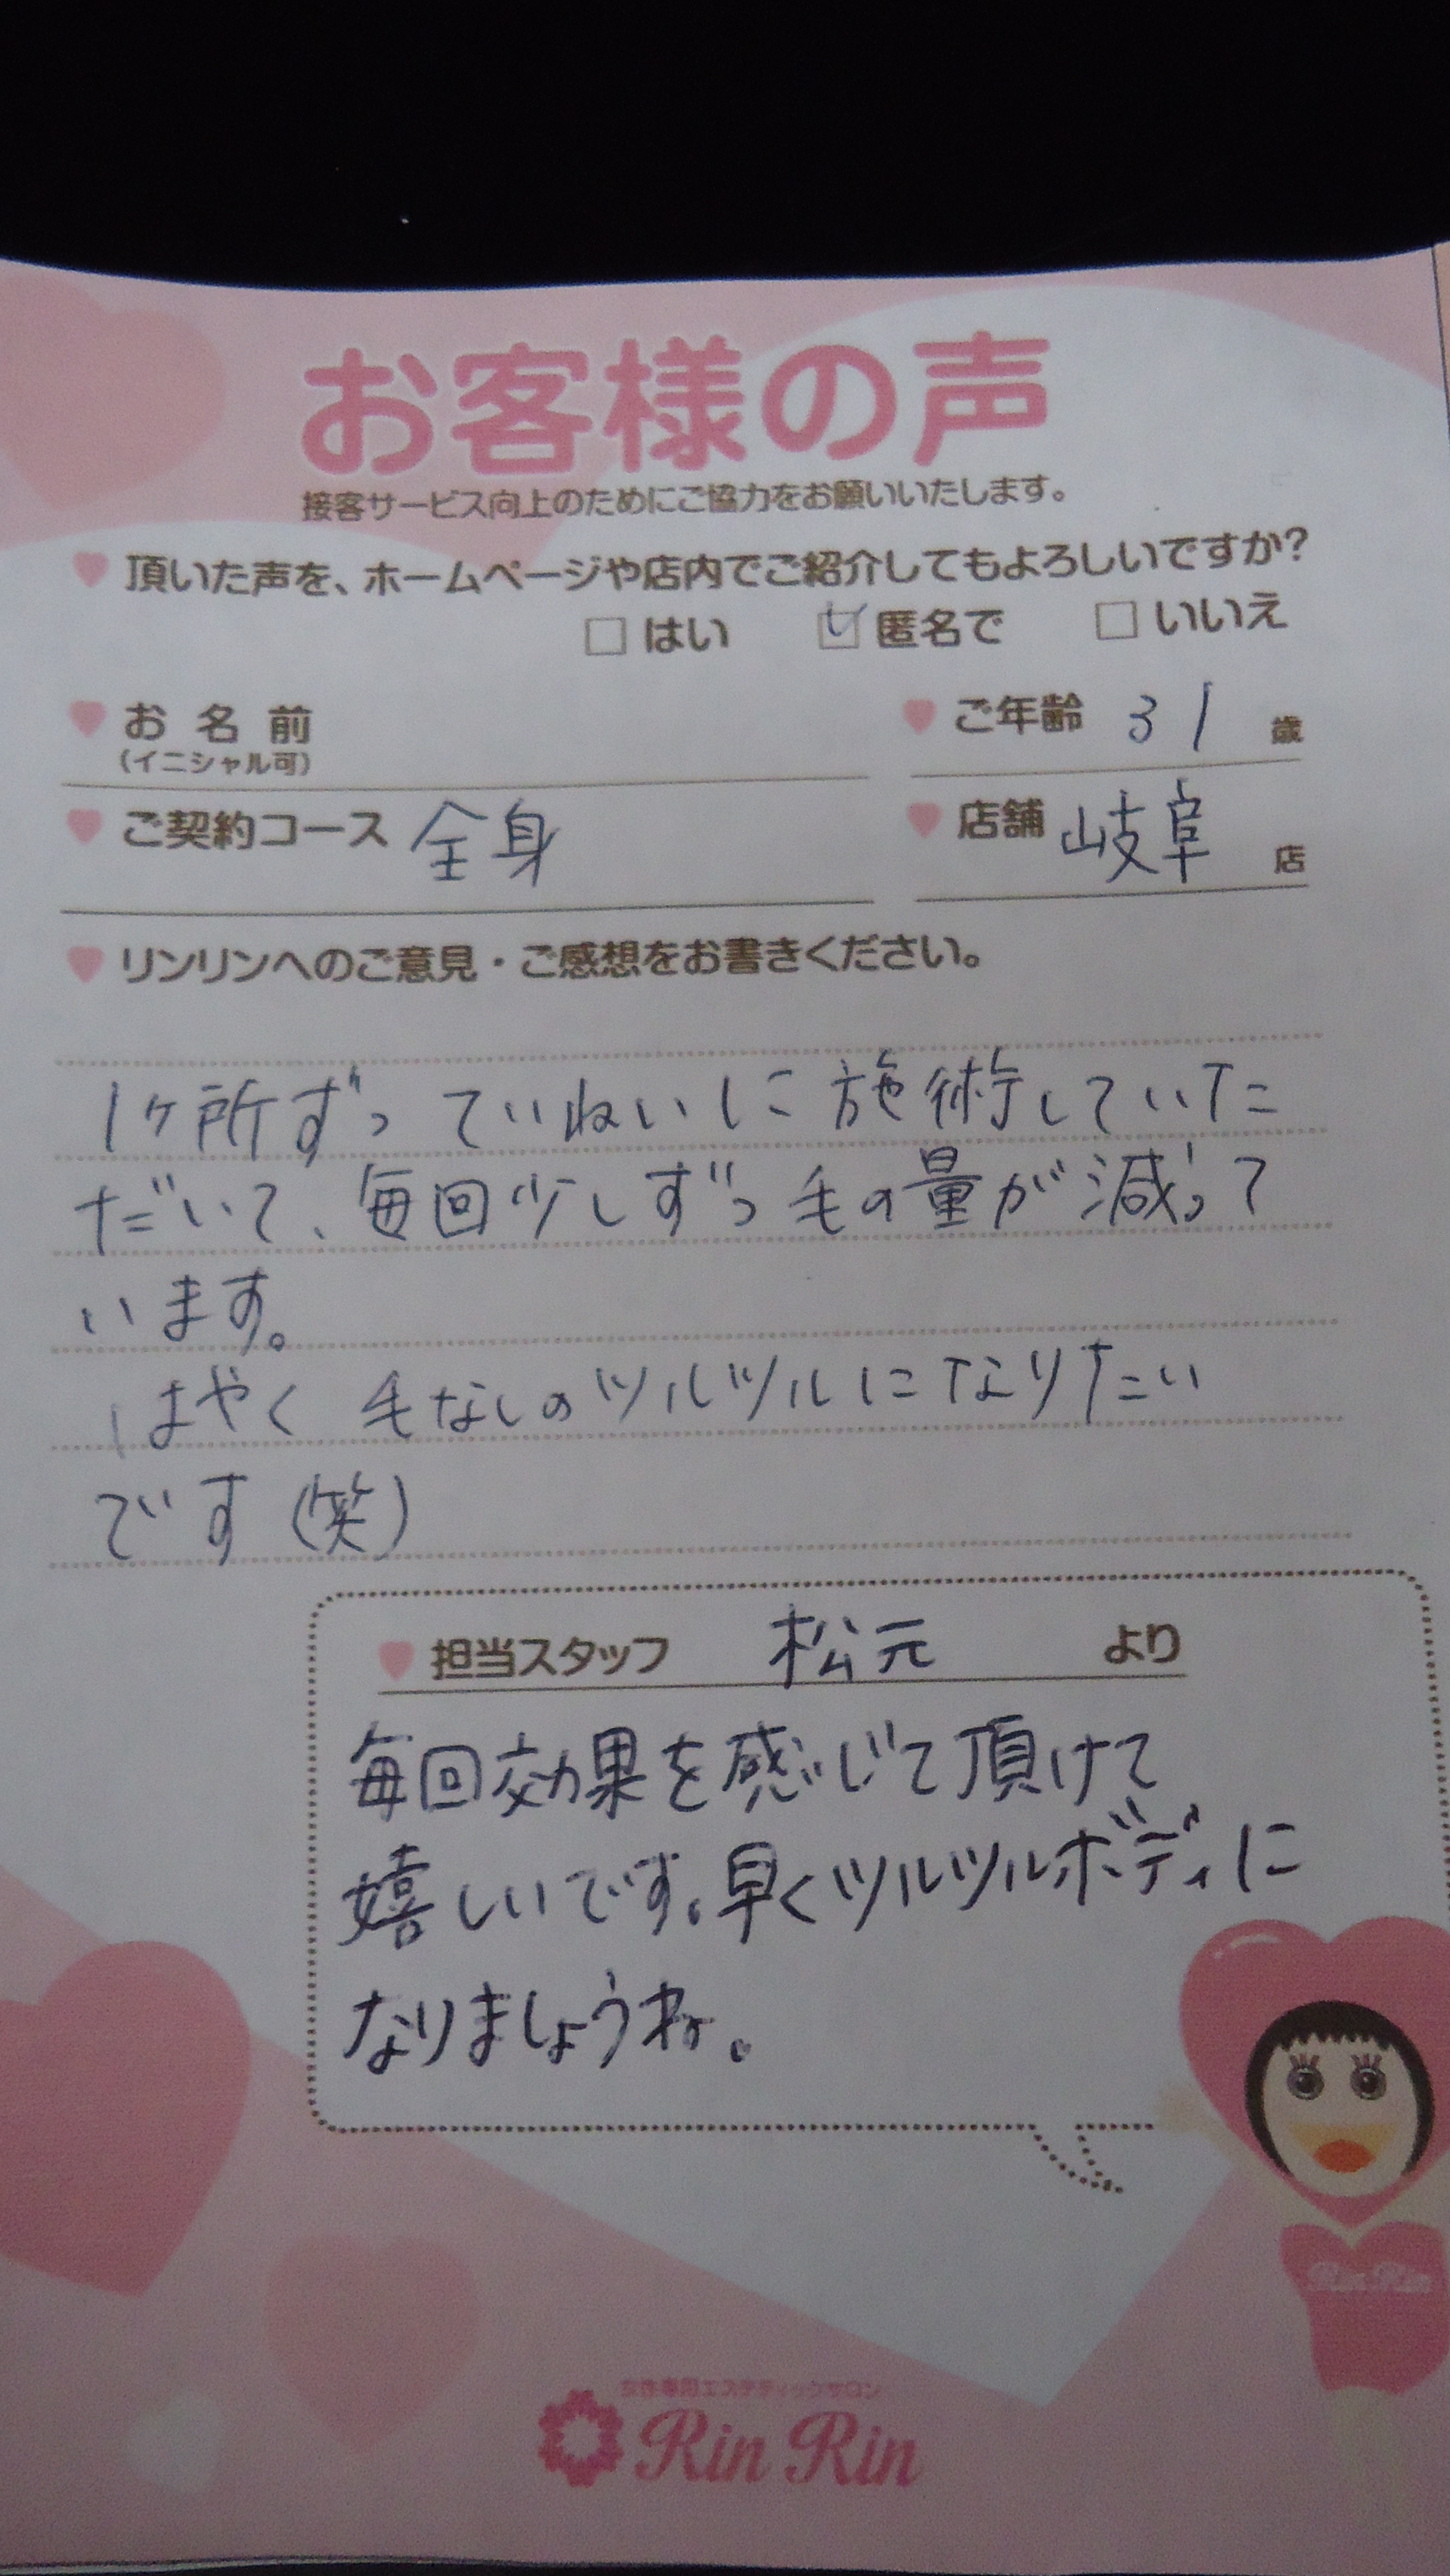 お客様の声
接客サービス向上のためにご協力をお願いいたします。
頂いた声を、ホームページや店内でご紹介してもよろしいですか?
はい 匿名で いいえ
お名前 ご年齢 31 歳
(イニシャル可)
ご契約コース 全身 店舗 岐阜 店
リンリンへのご意見・ご感想をお書きください。
1ヶ所ずつ ていねいに 施術していた
だいて、毎回少しずつ 毛の量が減って
います。
はやく 毛なしのツルツルになりたい
です(笑)
担当スタッフ 松元 より
毎回効果を感じて頂けて
嬉しいです。早くツルツルボディに
なりましょうね。
Rin Rin
女性専用エステティックサロン
Rin Rin